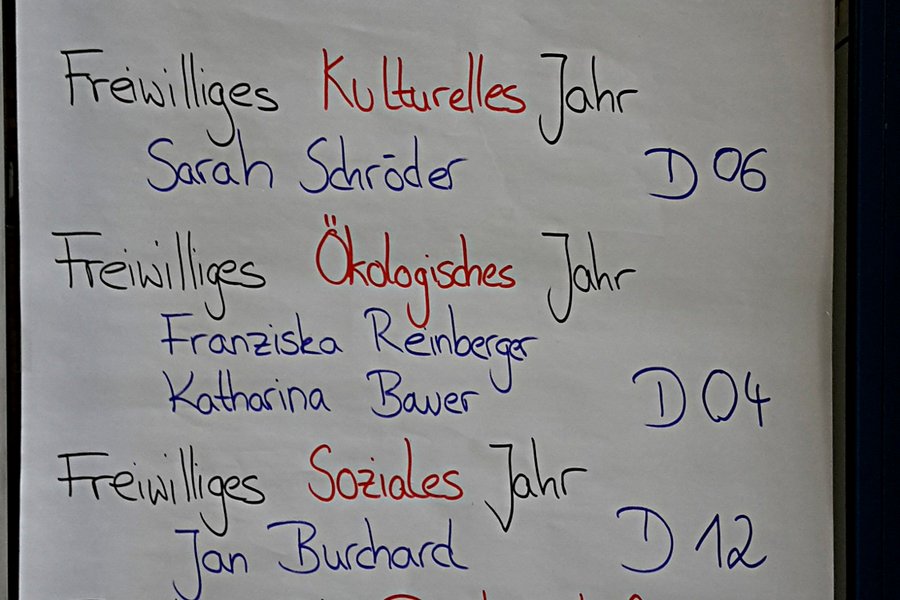 Freiwilliges Kulturelles Jahr
Sarah Schröder D 06
Freiwilliges Ökologisches Jahr
Franziska Reinberger
Katharina Bauer D 04
Freiwilliges Soziales Jahr
Jan Burchard D 12